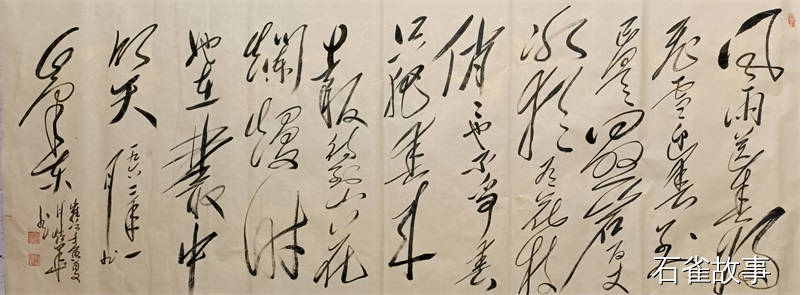 风雨送春归
飞雪迎春到
已是悬崖百丈
冰犹有花枝
俏俏也不争春
只把春来
报待到山花
烂漫时
她在丛中
笑
毛泽东
石雀故事